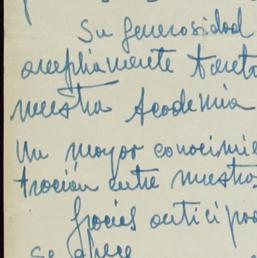 Su generosidad
ampliamente
nuestra Academia
Un mayor conocimie
tración entre nuestro
Gracias anticipad